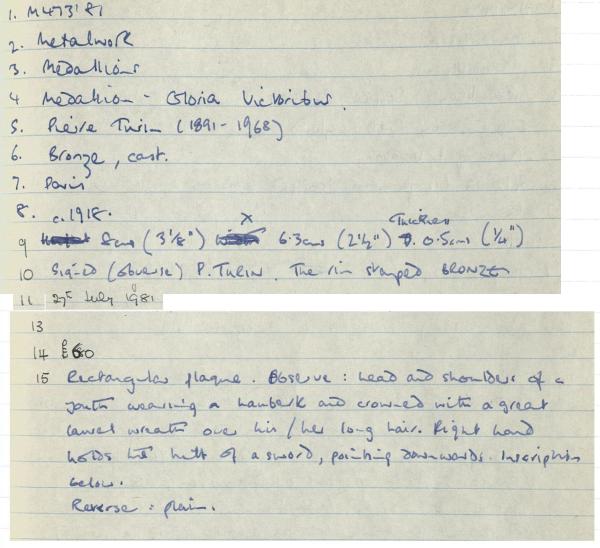 1. M473'81
2. Metalwork
3. Medallions
4 Medallion - Gloria Victoribus.
5. Pierre Turin (1891-1968)
6. Bronze, cast.
7. Paris
8. c.1918.
9 8cms (3 1/8") X 6.3cms (2 1/2") Thickness 0.5cms (1/4")
10 Signed (obverse) P. TURIN. The rim stamped BRONZE
11 27th July 1981
13
14 £60
15 Rectangular plaque. Obserse : head and shoulders of a
youth wearing a hauberk and crowned with a great
laurel wreath over his/her long hair. Right hand
holds the hilt of a sword, pointing downwards. Inscription
below.
Reverse : plain.